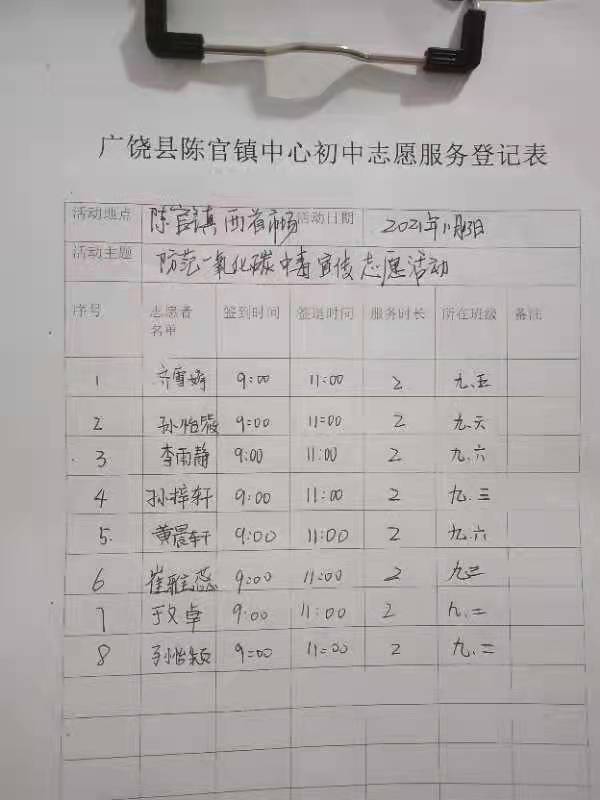 广饶县陈官镇中心初中志愿服务登记表
活动地点 陈官镇西省市场 活动日期 2021年11月13日
活动主题 防范一氧化碳中毒宣传志愿活动
序号 志愿者名单 签到时间 签退时间 服务时长 所在班级 备注
1 齐雪婷 9:00 11:00 2 九.五
2 孙怡 9:00 11:00 2 九.六
3 李雨静 9:00 11:00 2 九.六
4 孙梓轩 9:00 11:00 2 九.三
5. 黄晨轩 9:00 11:00 2 九.六
6 崔雅蕊 9:00 11:00 2 九.三
7 于文卓 9:00 11:00 2 九.二
8 孙怡颖 9:00 11:00 2 九.二